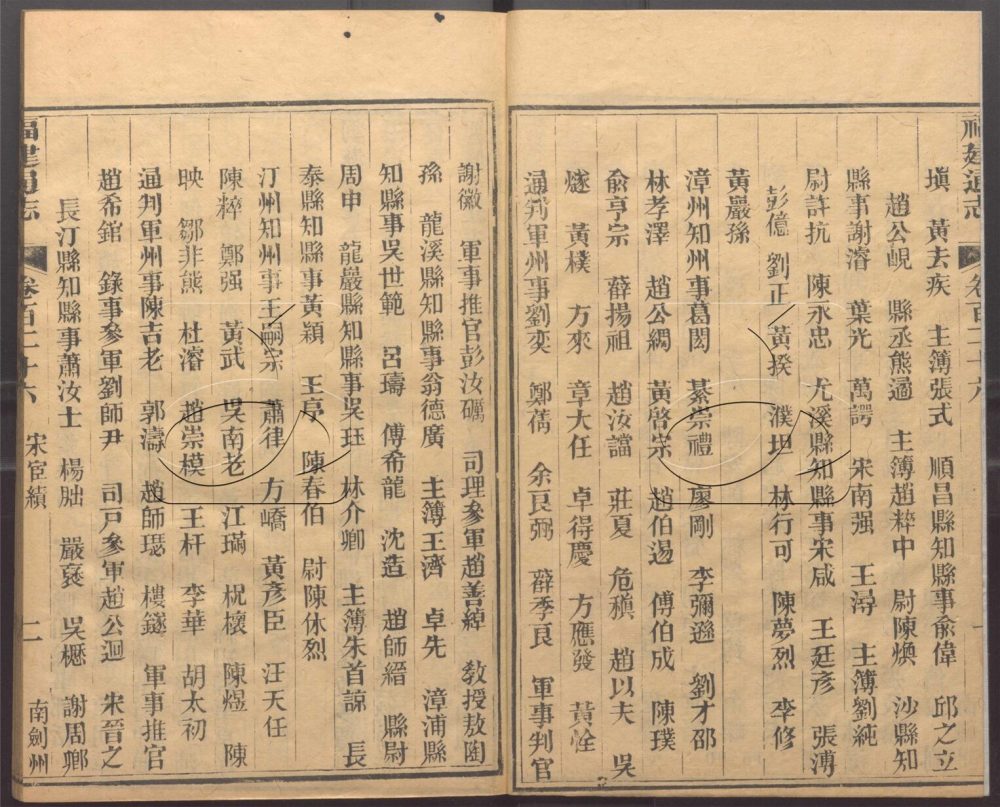 福建通志 卷百二十六 一
塡 黃去疾 主簿張式 順昌縣知縣事俞偉 邱之立
趙公峴 縣丞熊過 主簿趙粹中 尉陳煥 沙縣知
縣事謝濬 葉光 萬諤 宋南强 王潯 主簿劉純
尉許抗 陳永忠 尤溪縣知縣事宋咸 王廷彦 張溥
彭億 劉正 黃揆 濮坦 林行可 陳夢烈 李修
黃巖孫
漳州知州事葛閎 綦崇禮 廖剛 李彌遜 劉才邵
林孝澤 趙公綢 黃啓宗 趙伯逷 傅伯成 陳璞
俞亨宗 薛揚祖 趙汝讜 莊夏 危稹 趙以夫 吳
燧 黃樸 方來 章大任 卓得慶 方應發 黃佺
通判軍州事劉奕 鄭蒨 余良弼 薛季良 軍事判官
謝徽 軍事推官彭汝礪 司理參軍趙善綽 敎授敖陶
孫 龍溪縣知縣事翁德廣 主簿王濟 卓先 漳浦縣
知縣事吳世範 呂璹 傅希龍 沈造 趙師縉 縣尉
周申 龍巖縣知縣事吳珏 林介卿 主簿朱首諒 長
泰縣知縣事黃穎 王亭 陳春伯 尉陳休烈
汀州知州事王嗣宗 蕭律 方嶠 黃彦臣 汪天任
陳粹 鄭强 黃武 吳南老 江璊 祝櫰 陳煜 陳
映 鄒非熊 杜濬 趙崇模 王杆 李華 胡太初
通判軍州事陳吉老 郭濤 趙師瑟 樓鐩 軍事推官
趙希錧 錄事參軍劉師尹 司戸參軍趙公迥 宋晉之
長汀縣知縣事蕭汝士 楊朏 嚴裦 吳櫪 謝周卿
福建通志 卷百二十六 宋宦績 二 南劍州